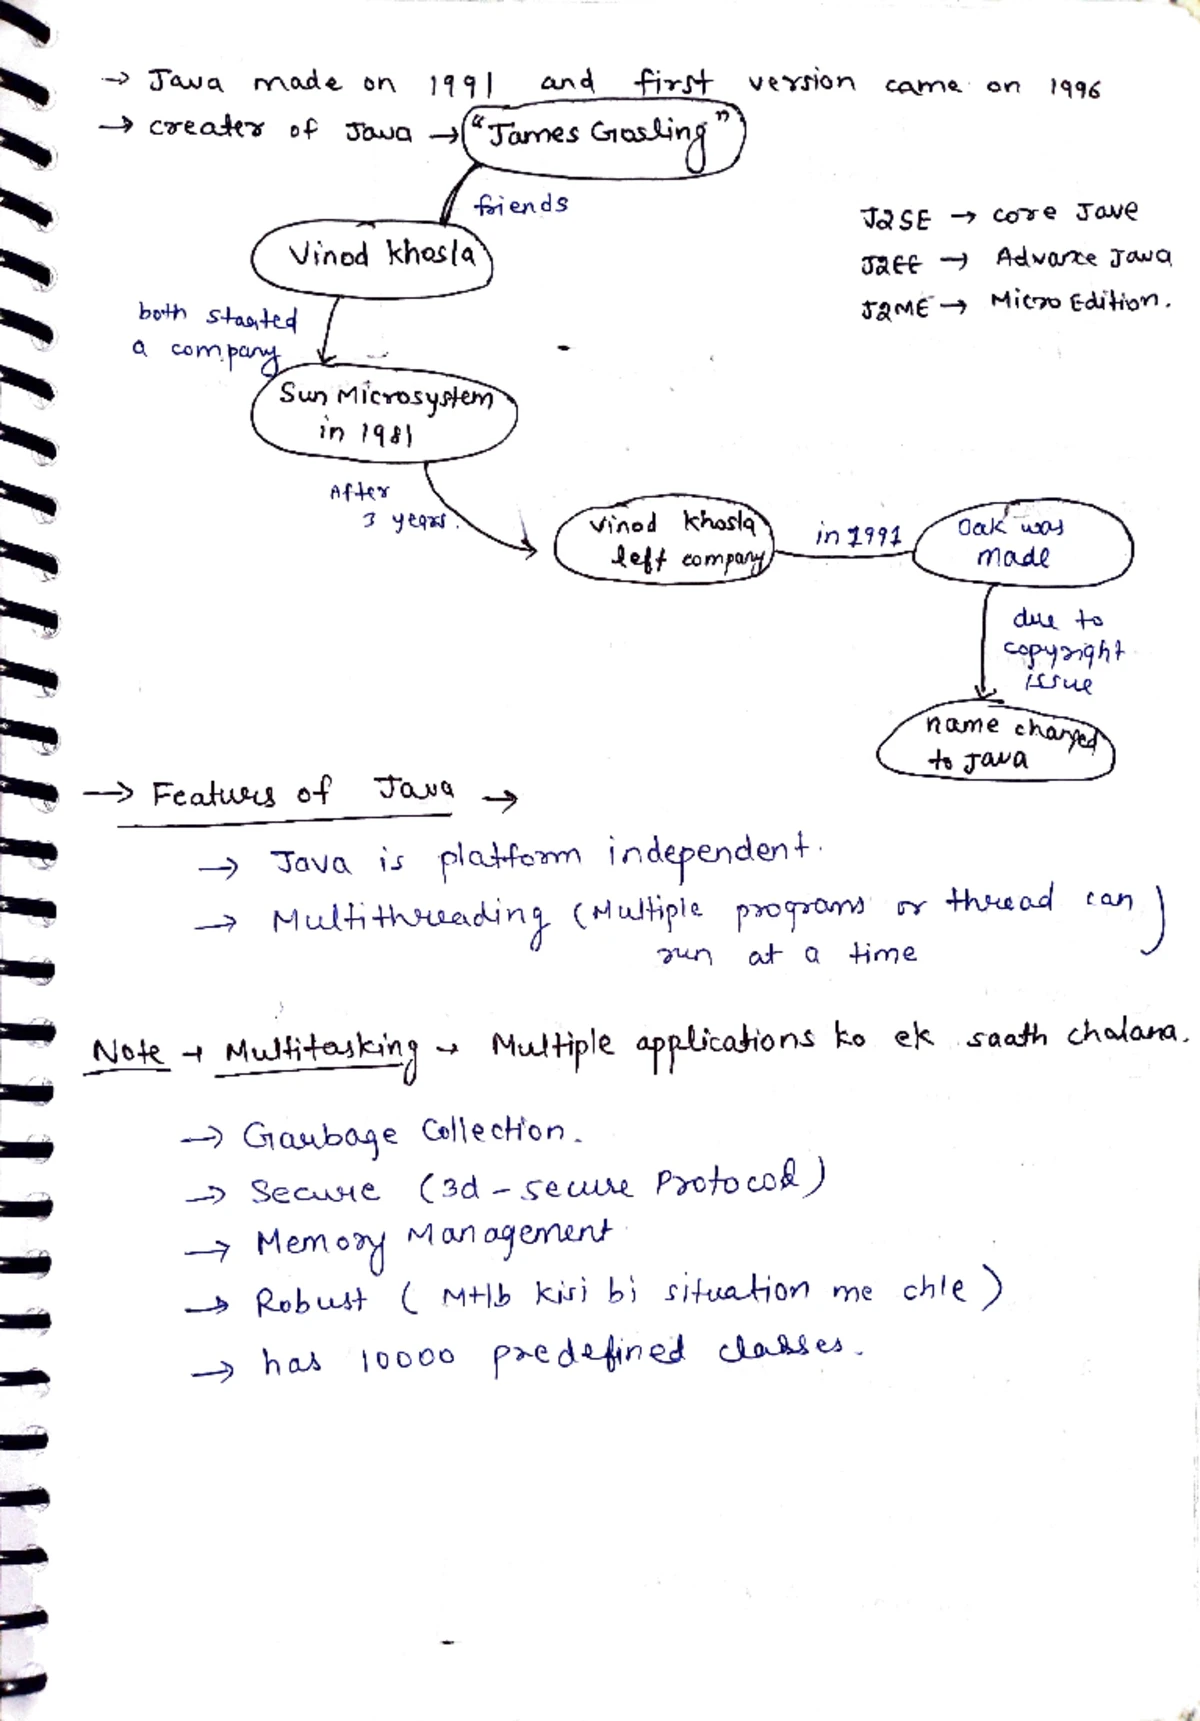 → Java made on 1991 and first version came on 1996
→ creater of Java → "James Gosling"
friends
Vinod Khosla
J2SE → core Jave
J2EE → Advance Java
J2ME → Micro Edition.
both started
a company
Sun Microsystem
in 1981
After
3 years.
Vinod Khosla
left company
in 1991
Oak was
made
due to
copyright
issue
name changed
to Java
→ Features of Java →
→ Java is platform independent.
→ Multithreading (Multiple programs or thread can
run at a time)
Note → Multitasking → Multiple applications ko ek saath chalana.
→ Garbage Collection.
→ Secure (3d-secure Protocol)
→ Memory Management
→ Robust ( Mtlb kisi bi situation me chle )
→ has 10000 predefined classes.